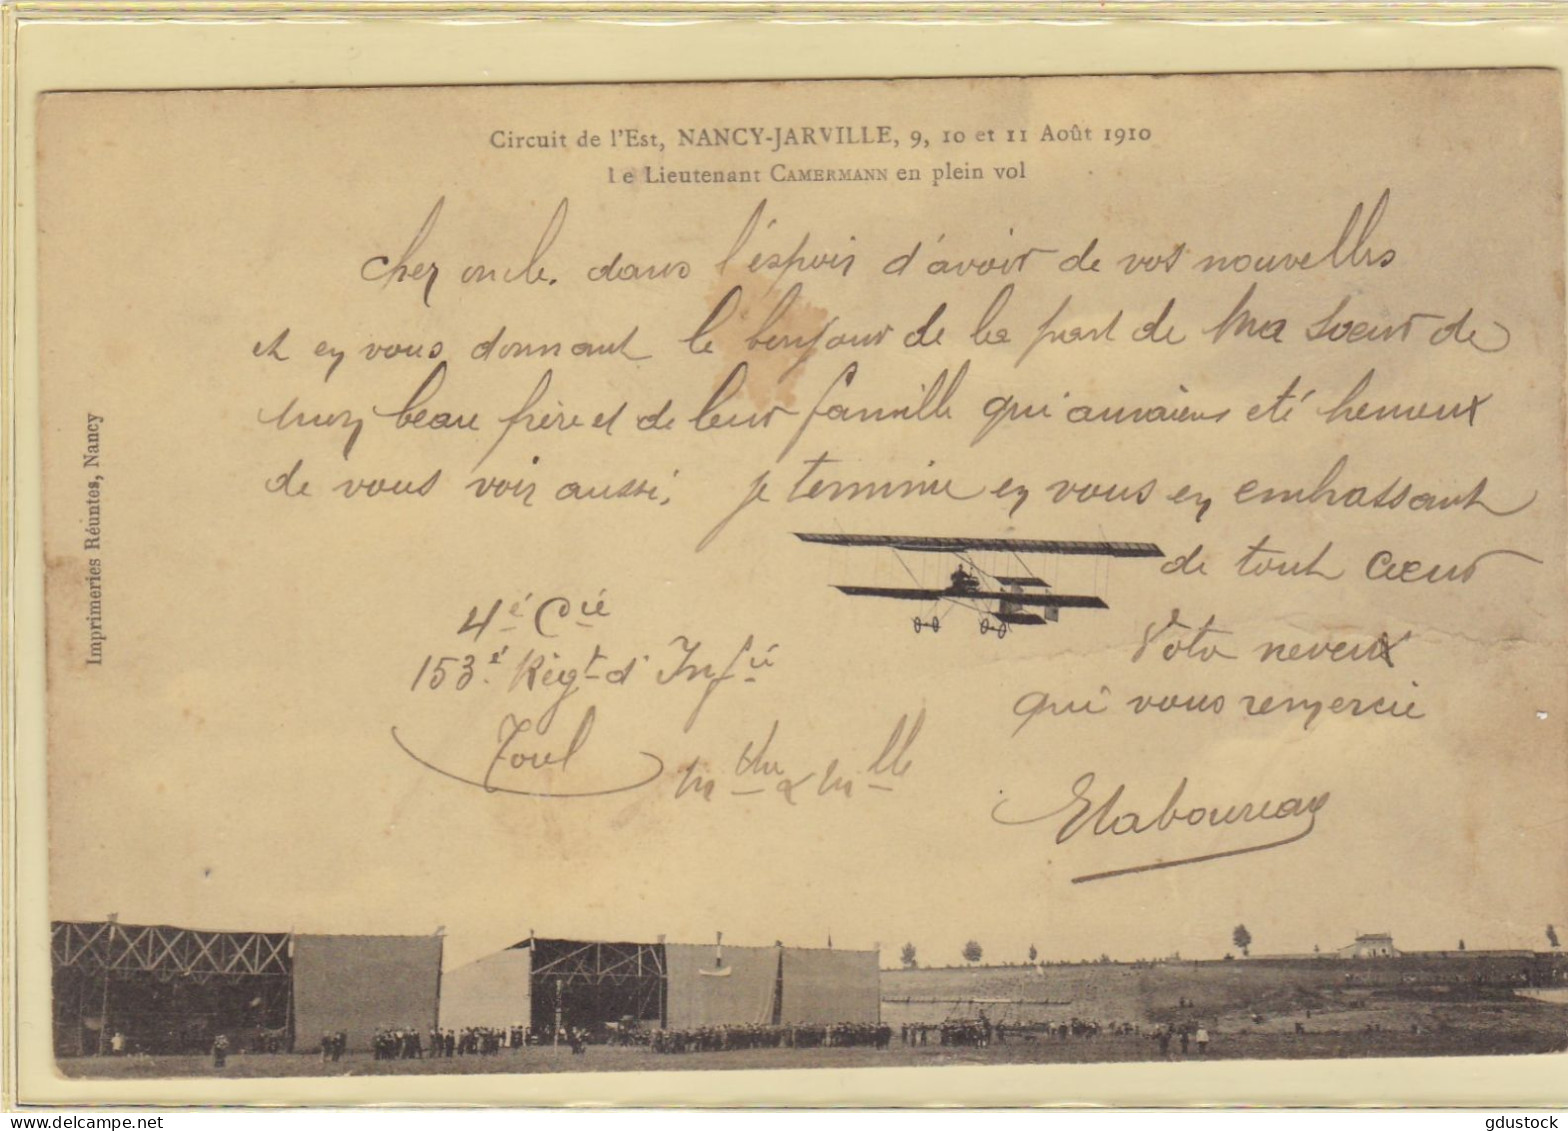 Circuit de l'Est, NANCY-JARVILLE, 9, 10 et 11 Août 1910
Le Lieutenant CAMERMANN en plein vol
Cher oncle. dans l'éspoir d'avoir de vos nouvelles
et en vous donnant le bonjour de la part de Ma Soeur de
mon beau frère et de leur famille qui auraiens eté heureux
de vous voir aussi, je termine en vous en embrassant
de tout Coeur
Votre neveux
qui vous remercie
4é Cie
153é Régt d' Infie
Toul
Mthe & Mlle
Imprimeries Réunies, Nancy
delcampe.net
gdustock